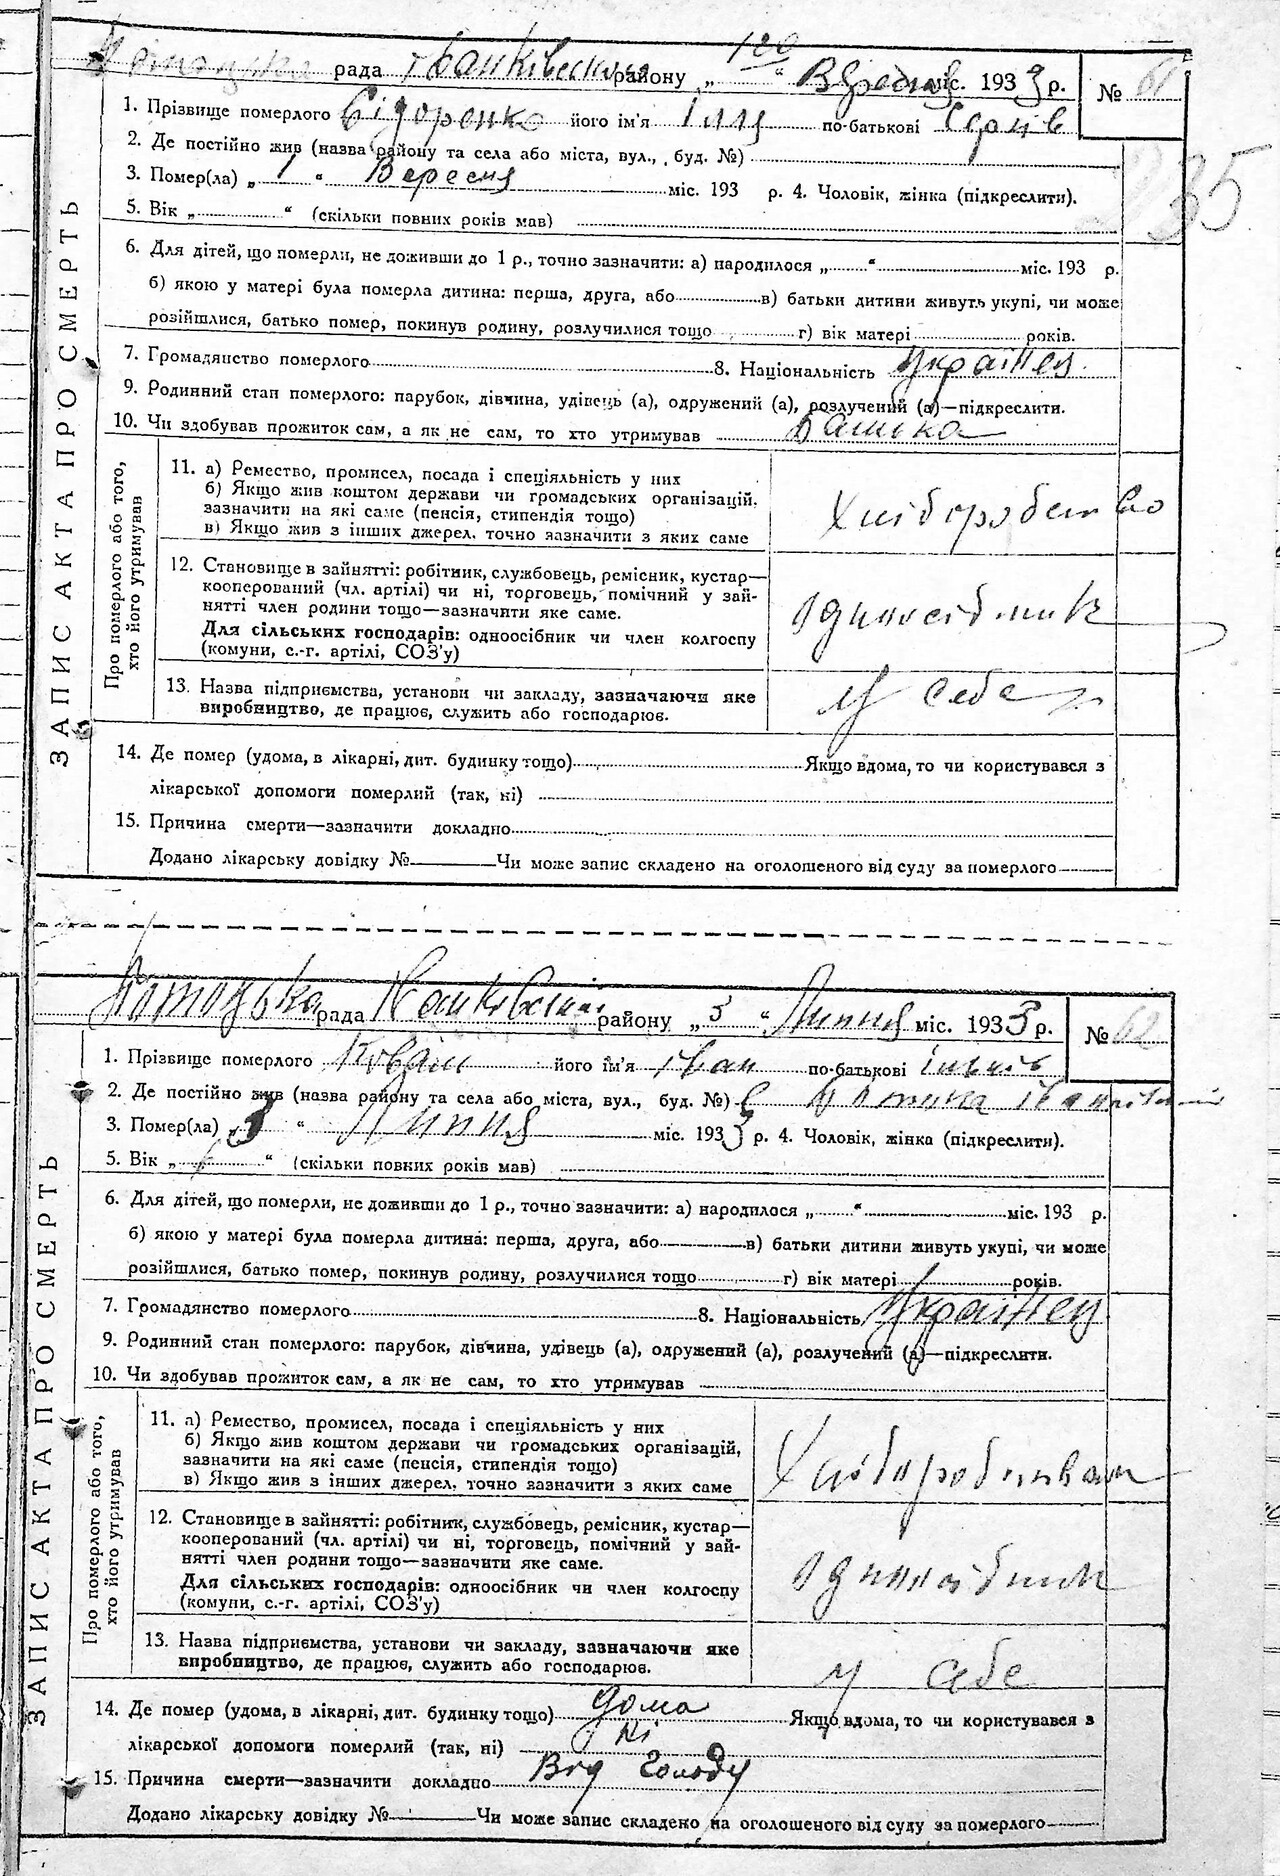 рада району „ " міс. 193 р. № 61
1. Прізвище померлого Сідоренко його ім'я Ілля по-батькові
2. Де постійно жив (назва району та села або міста, вул., буд. №)
3. Помер(ла) „ 1 " Вересня міс. 193 р. 4. Чоловік, жінка (підкреслити).
235
5. Вік „ " (скільки повних років мав)
6. Для дітей, що померли, не доживши до 1 р., точно зазначити: а) народилося „ " міс. 193 р.
б) якою у матері була померла дитина: перша, друга, або в) батьки дитини живуть укупі, чи може
розійшлися, батько помер, покинув родину, розлучилися тощо г) вік матері років.
7. Громадянство померлого 8. Національність Українец
9. Родинний стан померлого: парубок, дівчина, удівець (а), одружений (а), розлучений (а)—підкреслити.
10. Чи здобував прожиток сам, а як не сам, то хто утримував
ЗАПИС АКТА ПРО СМЕРТЬ
Про померлого або того,
хто його утримував
11. а) Ремество, промисел, посада і спеціяльність у них
б) Якщо жив коштом держави чи громадських організацій.
зазначити на які саме (пенсія, стипендія тощо)
в) Якщо жив з інших джерел. точно зазначити з яких саме
Хліборобство
12. Становище в зайнятті: робітник, службовець, ремісник, кустар—
кооперований (чл. артілі) чи ні, торговець, помічний у зай-
нятті член родини тощо—зазначити яке саме.
Для сільських господарів: одноосібник чи член колгоспу
(комуни, с.-г. артілі, СОЗ'у)
одноосібник
13. Назва підприємства, установи чи закладу, зазначаючи яке
виробництво, де працює, служить або господарює.
у себе
14. Де помер (удома, в лікарні, дит. будинку тощо) Якщо вдома, то чи користувався з
лікарської допомоги померлий (так, ні)
15. Причина смерти—зазначити докладно
Додано лікарську довідку № Чи може запис складено на оголошеного від суду за померлого
рада району „ 3 " Липня міс. 1933 р. № 62
1. Прізвище померлого його ім'я Іван по-батькові
2. Де постійно жив (назва району та села або міста, вул., буд. №)
3. Помер(ла) „ 3 " Липня міс. 1933 р. 4. Чоловік, жінка (підкреслити).
5. Вік „ " (скільки повних років мав)
6. Для дітей, що померли, не доживши до 1 р., точно зазначити: а) народилося „ " міс. 193 р.
б) якою у матері була померла дитина: перша, друга, або в) батьки дитини живуть укупі, чи може
розійшлися, батько помер, покинув родину, розлучилися тощо г) вік матері років.
7. Громадянство померлого 8. Національність Українец
9. Родинний стан померлого: парубок, дівчина, удівець (а), одружений (а), розлучений (а)—підкреслити.
10. Чи здобував прожиток сам, а як не сам, то хто утримував
ЗАПИС АКТА ПРО СМЕРТЬ
Про померлого або того,
хто його утримував
11. а) Ремество, промисел, посада і спеціяльність у них
б) Якщо жив коштом держави чи громадських організацій,
зазначити на які саме (пенсія, стипендія тощо)
в) Якщо жив з інших джерел, точно зазначити з яких саме
12. Становище в зайнятті: робітник, службовець, ремісник, кустар—
кооперований (чл. артілі) чи ні, торговець, помічний у зай-
нятті член родини тощо—зазначити яке саме.
Для сільських господарів: одноосібник чи член колгоспу
(комуни, с.-г. артілі, СОЗ'у)
одноосібник
13. Назва підприємства, установи чи закладу, зазначаючи яке
виробництво, де працює, служить або господарює.
у себе
14. Де помер (удома, в лікарні, дит. будинку тощо) дома Якщо вдома, то чи користувався з
лікарської допомоги померлий (так, ні) ні
15. Причина смерти—зазначити докладно Від голоду
Додано лікарську довідку № Чи може запис складено на оголошеного від суду за померлого